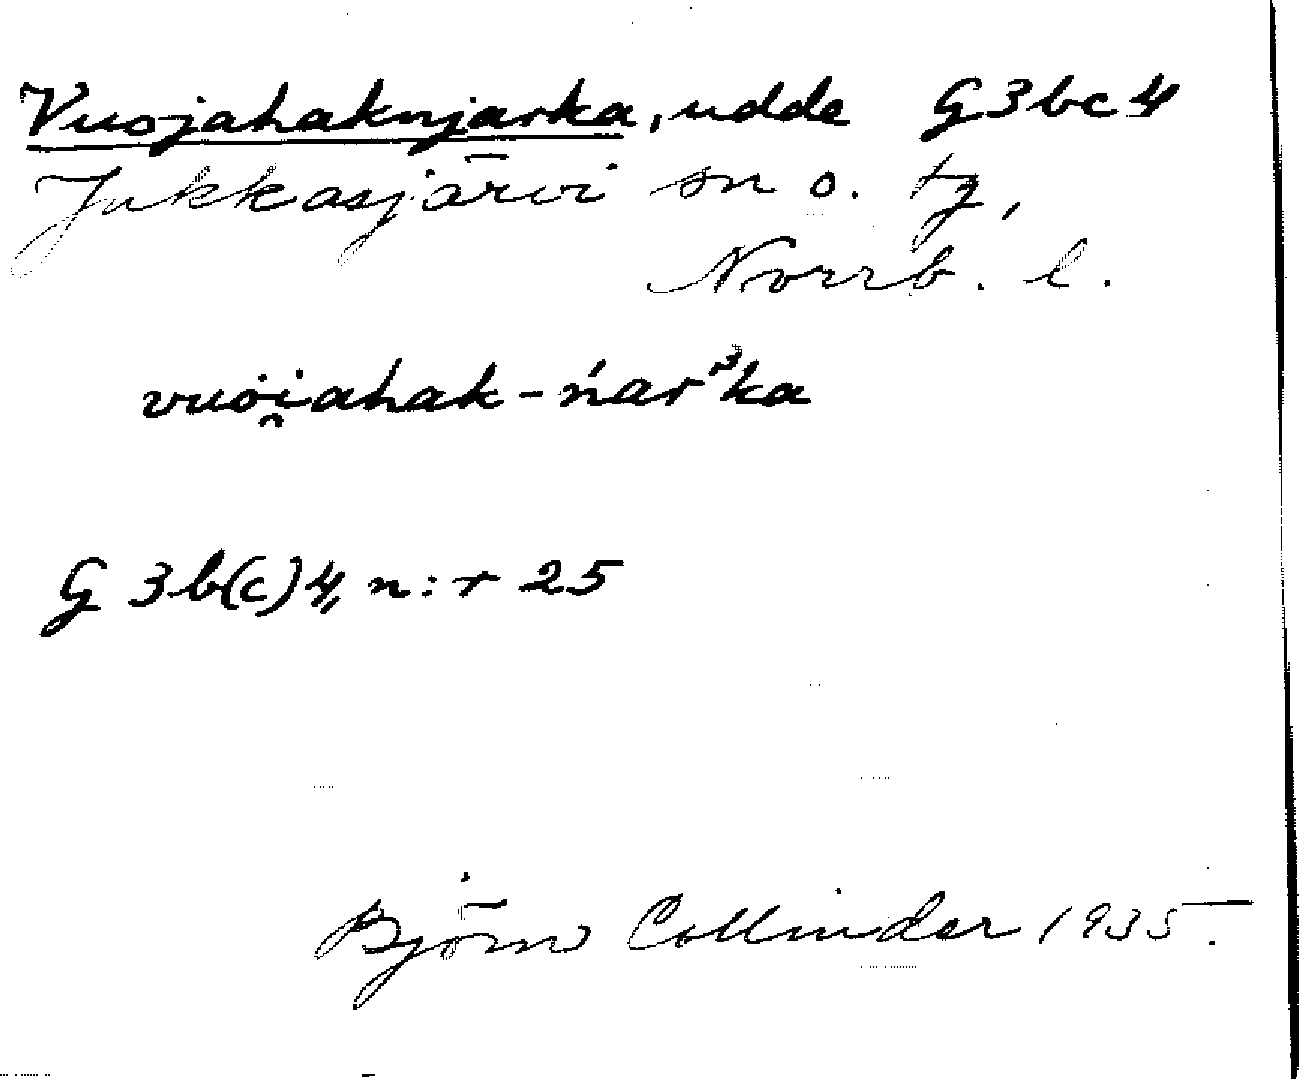 Vuojahaknjarka, udde G3bc4
Jukkasjärvi sn o. tg,
Norrb. l.
vuȯi̯ahak-ńarᵌka
G 3b(c)4, n:r 25
Björn Collinder 1935.